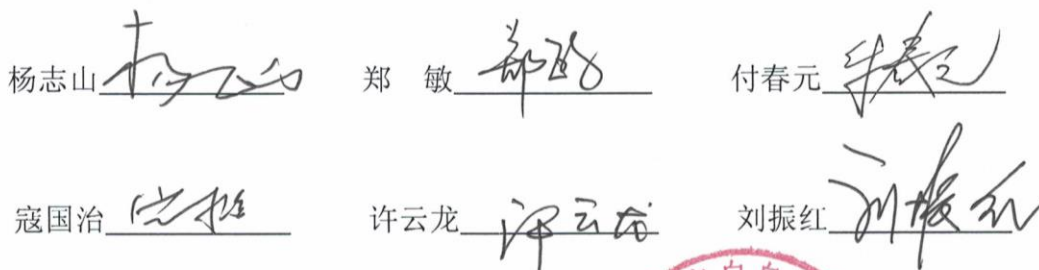 杨志山 杨志山 郑 敏 郑敏 付春元 付春元
寇国治 许云龙 许云龙 刘振红 刘振红